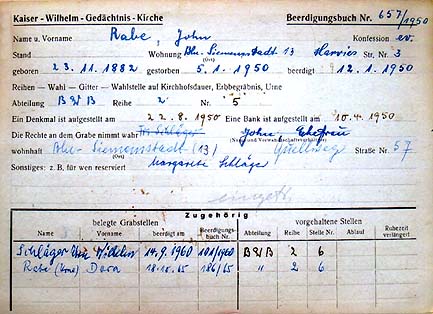 Kaiser - Wilhelm - Gedächtnis - Kirche Beerdigungsbuch Nr. 657/1950
Name u. Vorname Rabe, John Konfession ev.
Stand Wohnung Bln.-Siemensstadt 13 Harries Str., Nr. 3
(Ort)
geboren 23.11.1882 gestorben 5.1.1950 beerdigt 12.1.1950
Reihen — Wahl — Gitter — Wahlstelle auf Kirchhofsdauer, Erbbegräbnis, Urne
Abteilung B W B Reihe 2 Nr. 5
Ein Denkmal ist aufgestellt am 22.8.1950 Eine Bank ist aufgestellt am 10.4.1950
Die Rechte an dem Grabe nimmt wahr Schläger Ehefrau
wohnhaft Bln-Siemensstadt (13) Quellweg Straße Nr. 57
(Ort)
Sonstiges: z. B. für wen reserviert Margarete Schläger
Zugehörig
belegte Grabstellen vorgehaltene Stellen
Name Vorname beerdigt am Beerdigungsbuch Nr. Abteilung Reihe Stelle Nr. Ablauf Ruhezeit verlängert
Schläger Wilhelm 14.9.1960 101/1960 B W B 2 6
Rabe (Urne) Dora 18.10.65 186/65 " 2 6